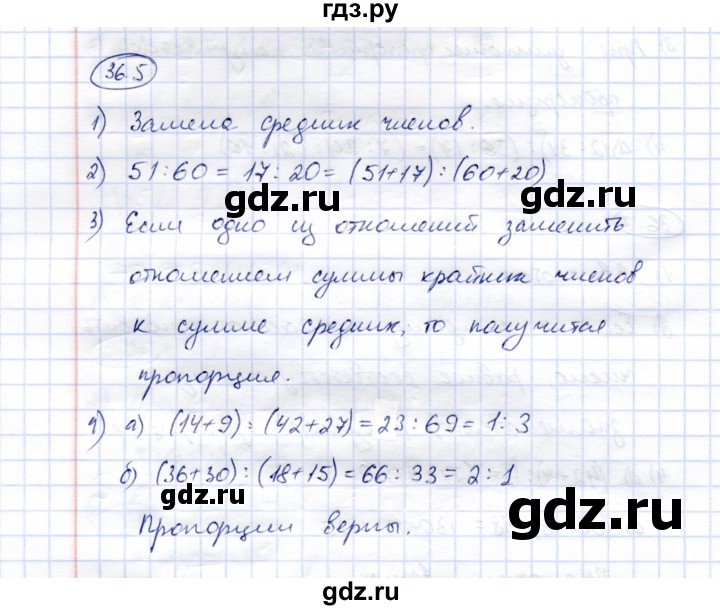 гдз.ру
36.5
1) Замена средних членов.
2) 51:60 = 17:20 = (51+17):(60+20)
gdz.ru
3) Если одно из отношений заменить
отношением суммы крайних членов
к сумме средних, то получится
пропорция.
gdz.ru
4) а) (14+9):(42+27)=23:69=1:3
б) (36+30):(18+15)=66:33=2:1
Пропорции верны.
gdz.ru
gdz.ru